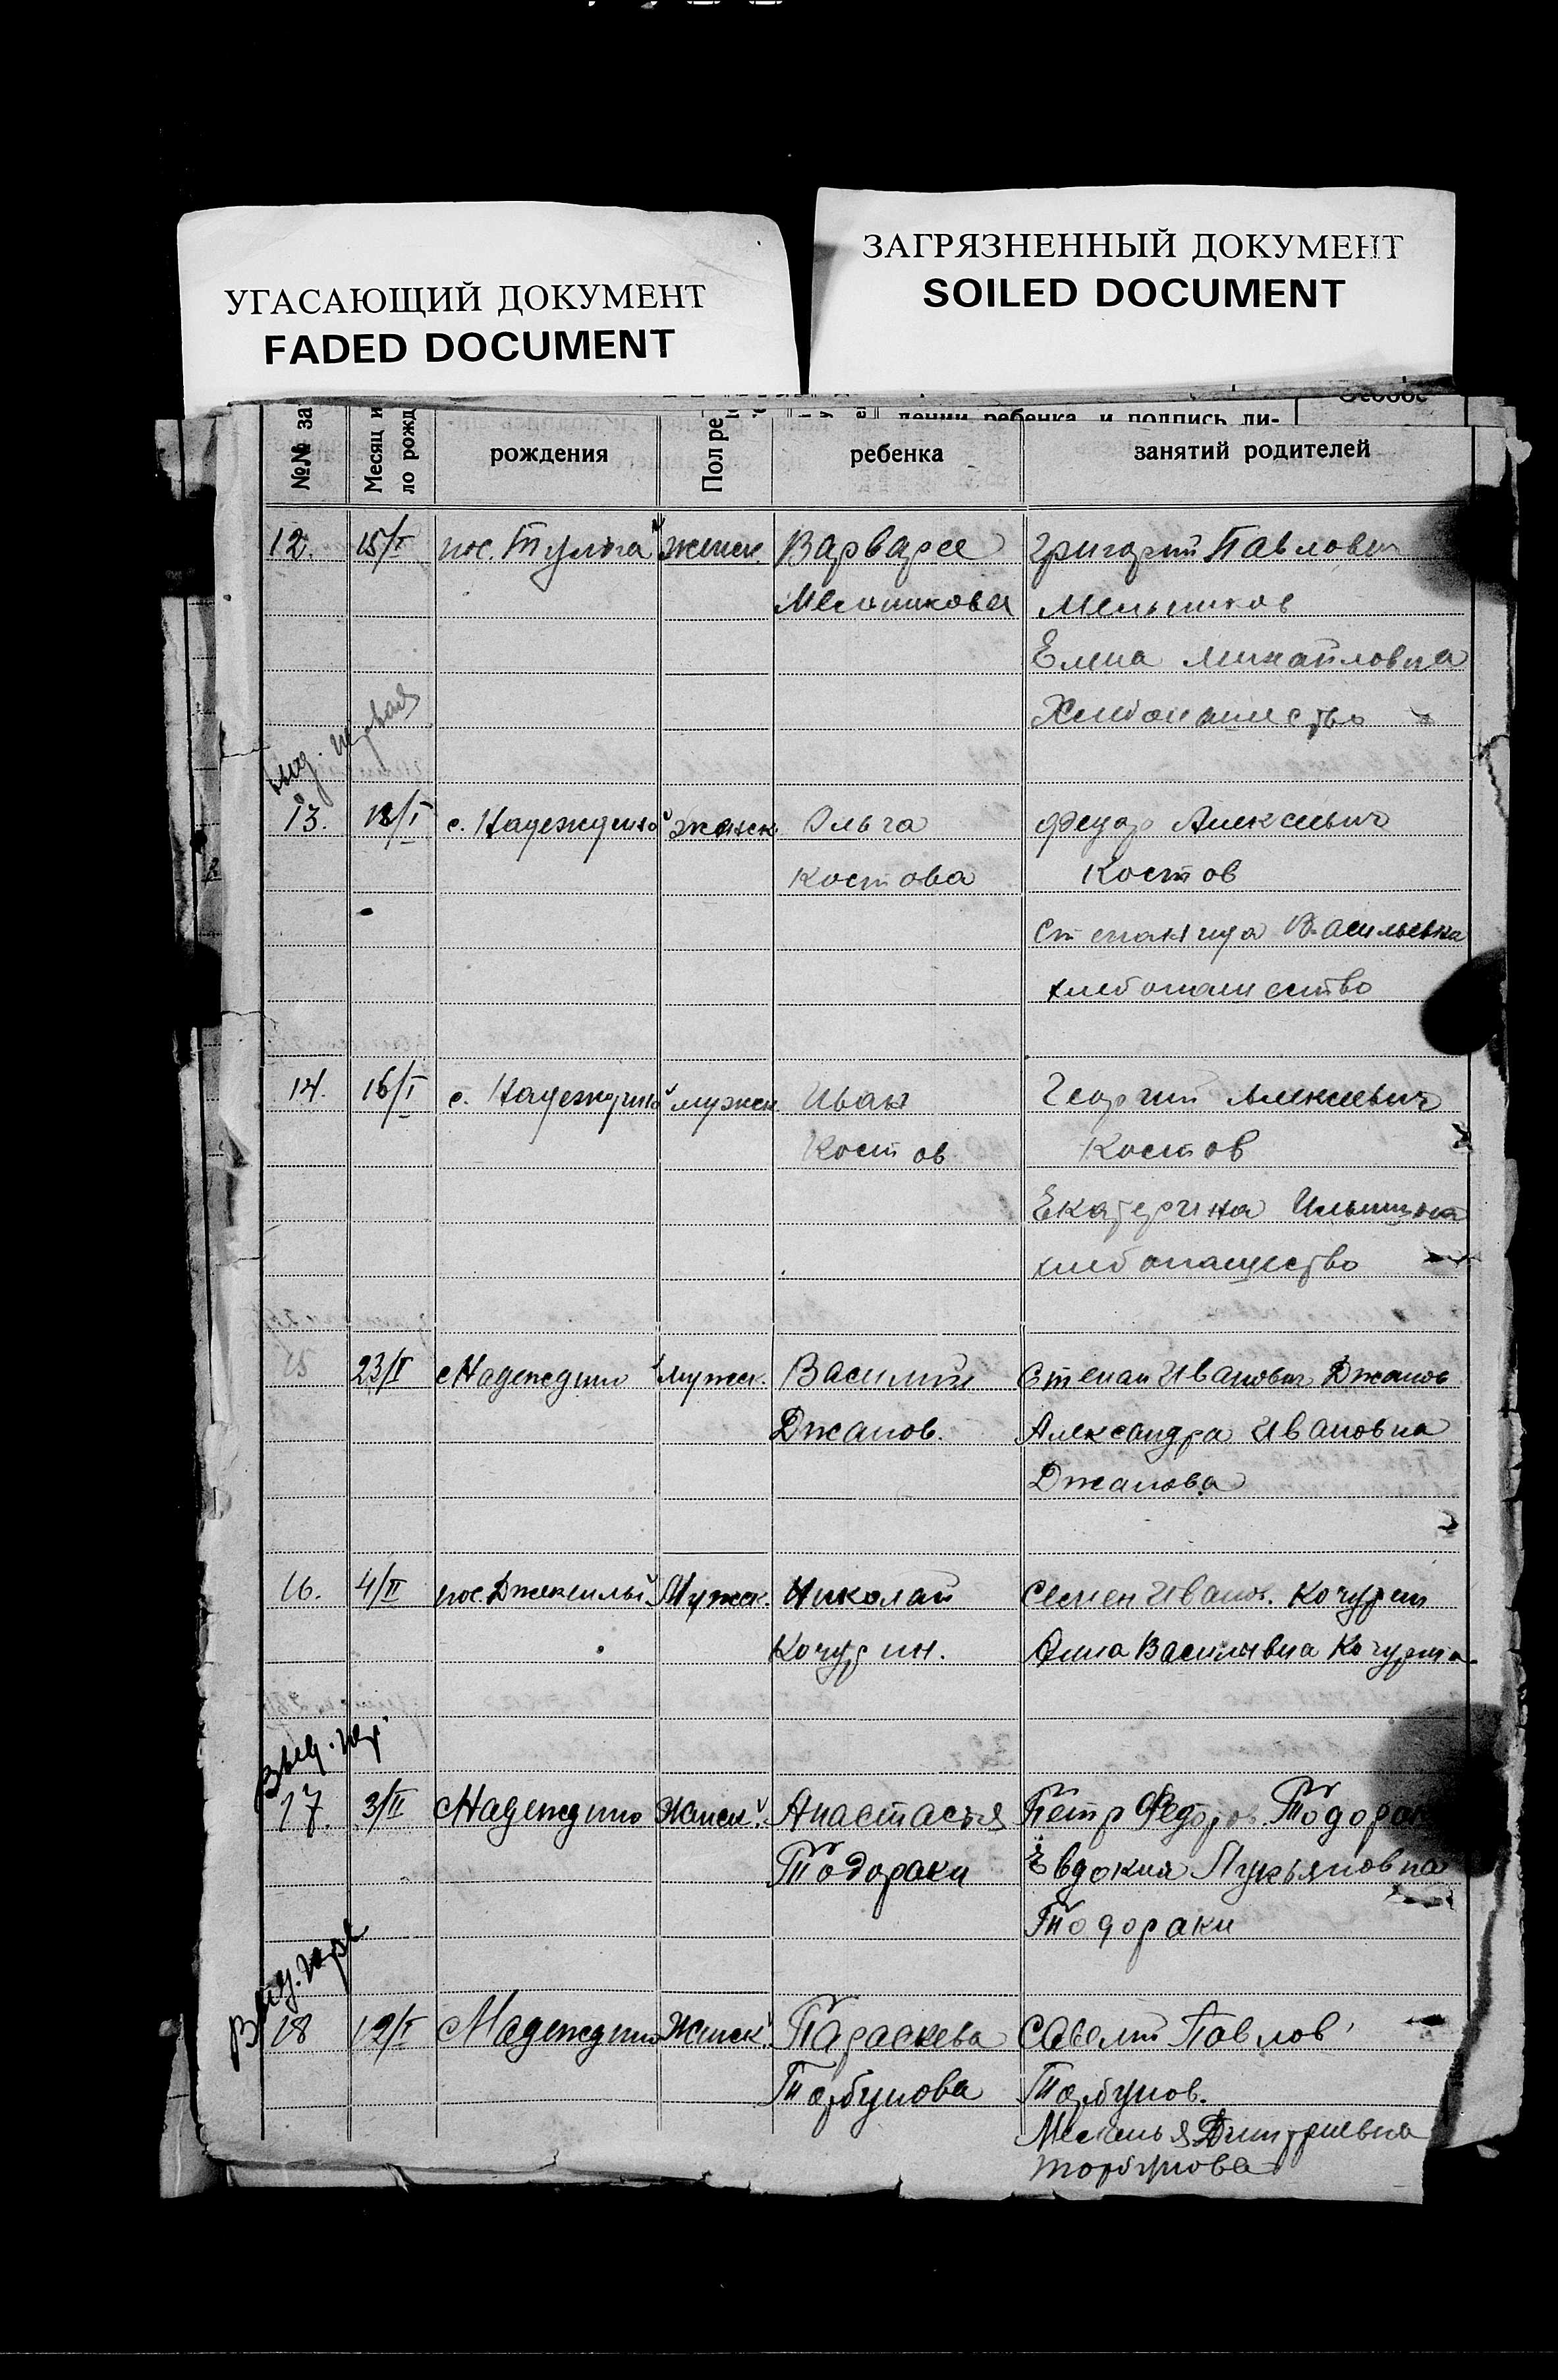 УГАСАЮЩИЙ ДОКУМЕНТ
FADED DOCUMENT
ЗАГРЯЗНЕННЫЙ ДОКУМЕНТ
SOILED DOCUMENT
дении ребенка и подпись ли-
Особое
№№ за
Месяц и
ло рожд
рождения
Пол ре
ребенка
занятий родителей
12. 15/I пос. женск. Варвара Григорий Павлович
Мельникова Мельников
Елена Михайловна
Хлебопашество
13. 12/I с. Надеждино женск Ольга Федор Алексеевич
Костова Костов
Степанида Васильевна
хлебопашество
14. 16/I с. Надеждино мужск Иван Георгий Алексеевич
Костов Костов
Екатерина Ильинична
хлебопашество
15 23/I с Надеждино мужск. Василий Степан Иванович Джанов
Джанов. Александра Ивановна
Джанова
16. 4/II пос. Мужск. Николай Семен Иванов. Кочурин
Кочурин. Анна Васильевна Кочурина
Выд.
17. 3/II с Надеждино Женск. Анастасья Петр Федоров. Тодораки
Тодораки Евдокия Лукьяновна
Тодораки
Выд.
18 12/I с Надеждино Женск. Параскева Савелий Павлов
Торбунова Торбунов.
Меланья Дмитриевна
Торбунова